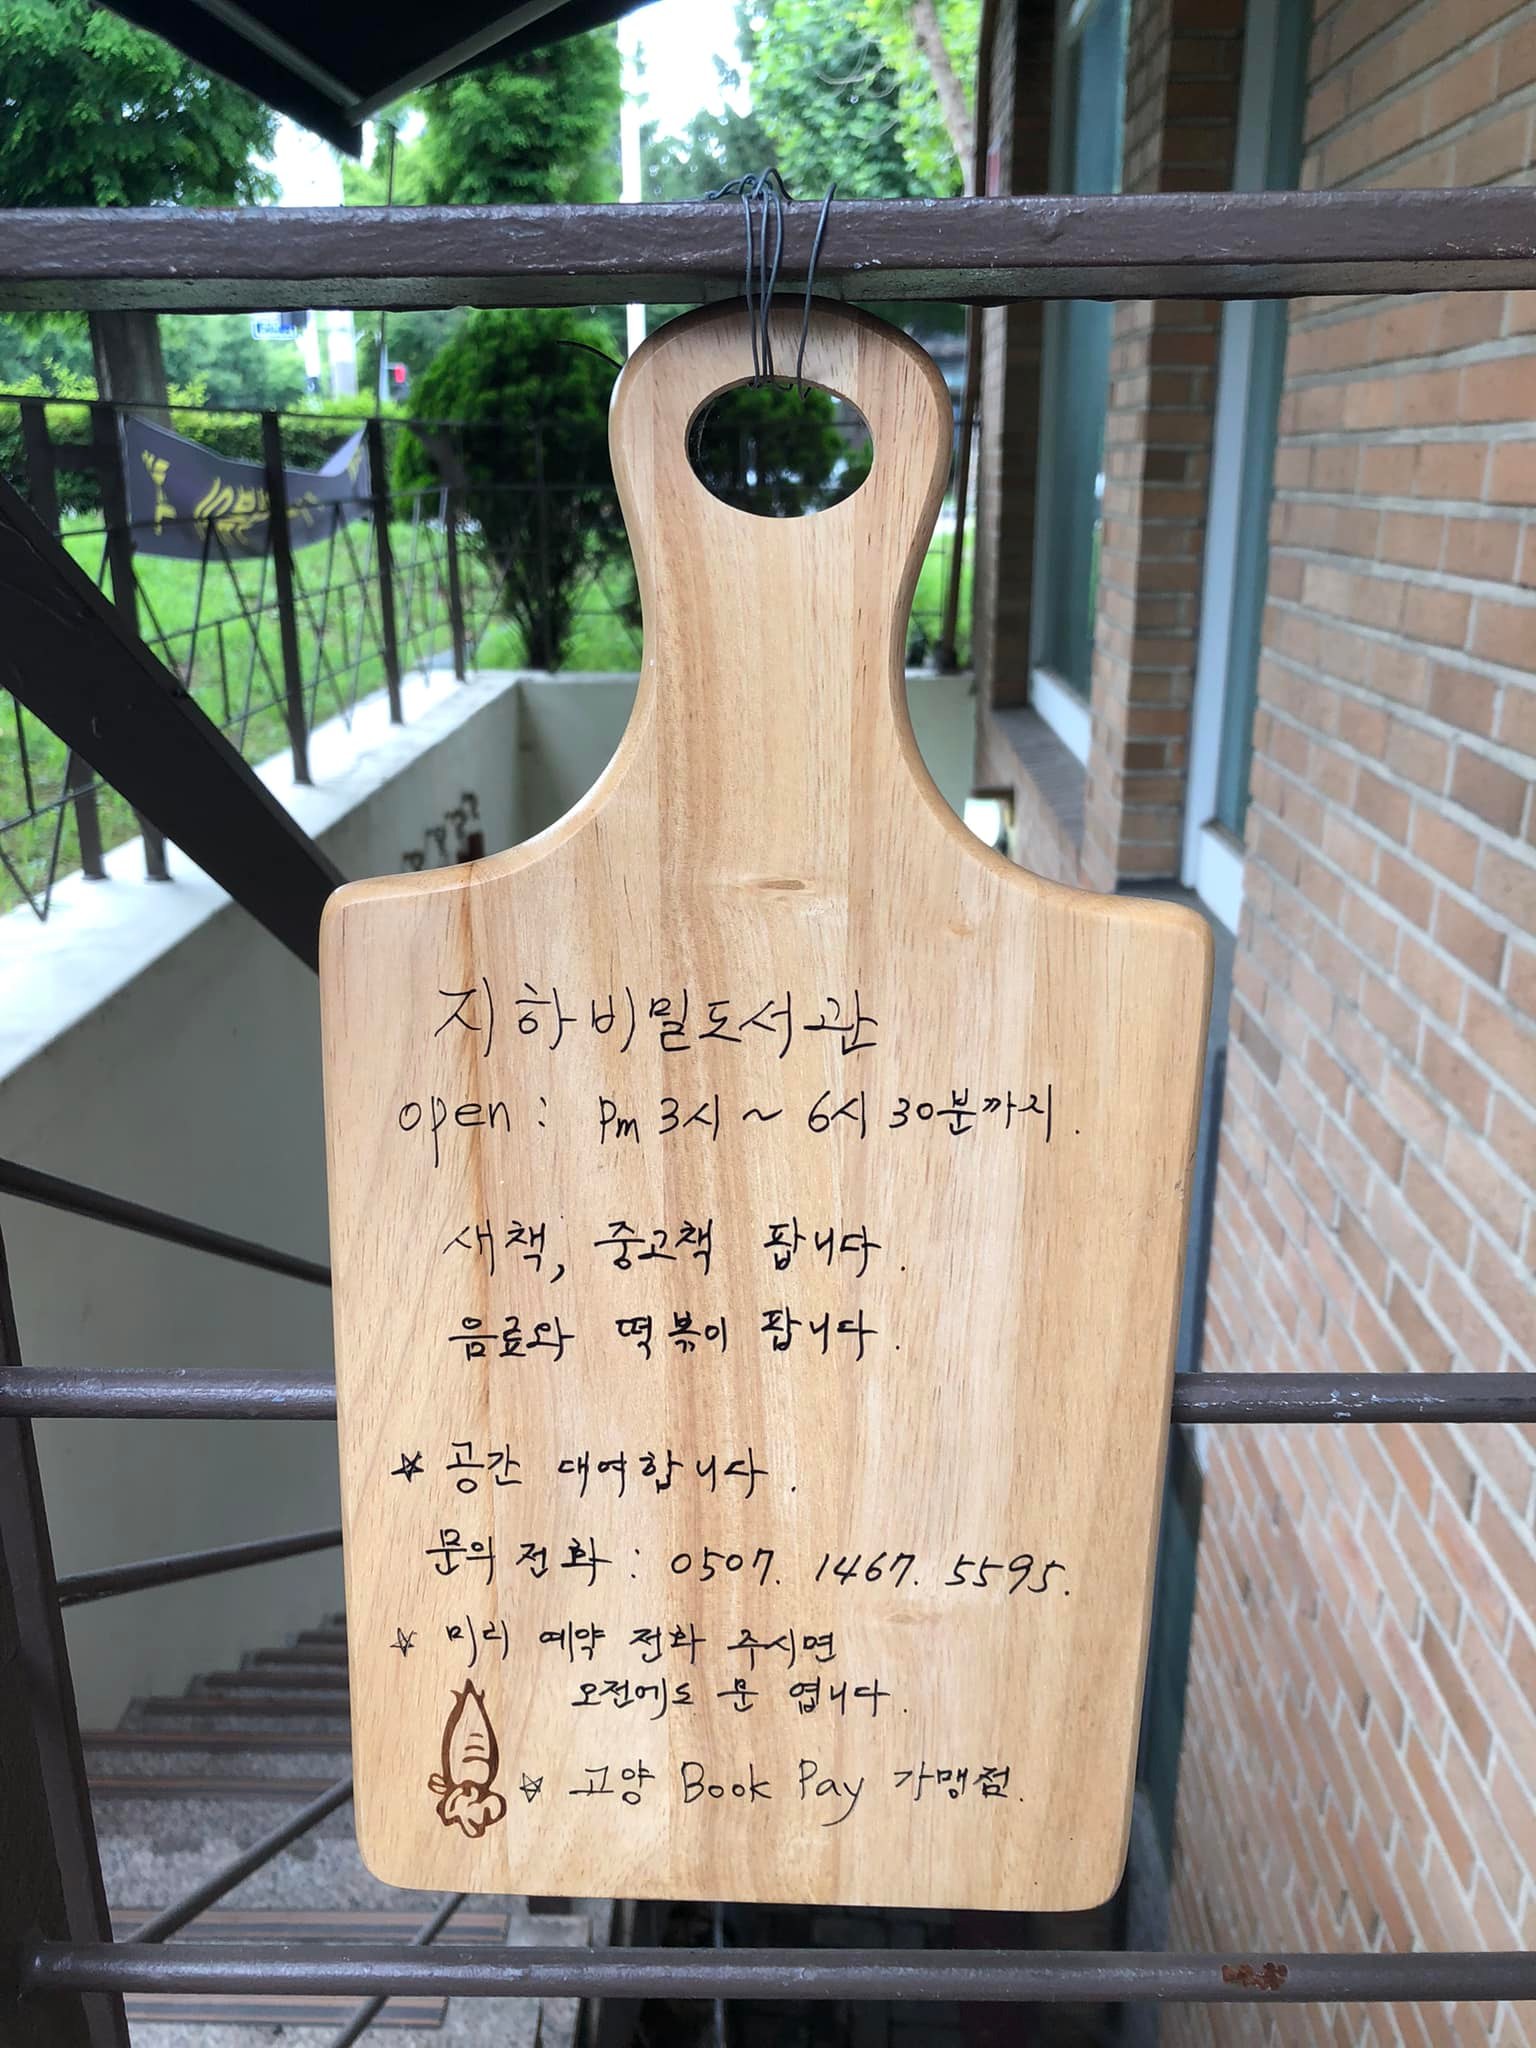 지하비밀도서관
open : pm 3시 ~ 6시 30분까지.
새책, 중고책 팝니다.
음료와 떡볶이 팝니다.
☆ 공간 대여합니다.
문의 전화 : 0507. 1467. 5595.
☆ 미리 예약 전화 주시면
오전에도 문 엽니다.
☆ 고양 Book Pay 가맹점.